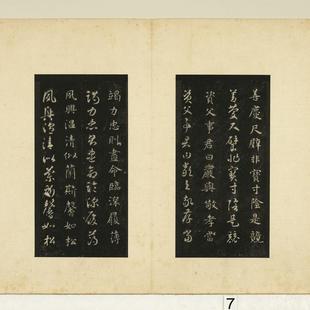 善慶尺璧非寶寸陰是競
善慶尺璧非寶寸陰是競
資父事君曰嚴與敬孝當
資父事君曰嚴與敬孝當
竭力忠則盡命臨深履薄
竭力忠則盡命臨深履薄
夙興溫凊似蘭斯馨如松
夙興溫凊似蘭斯馨如松
7